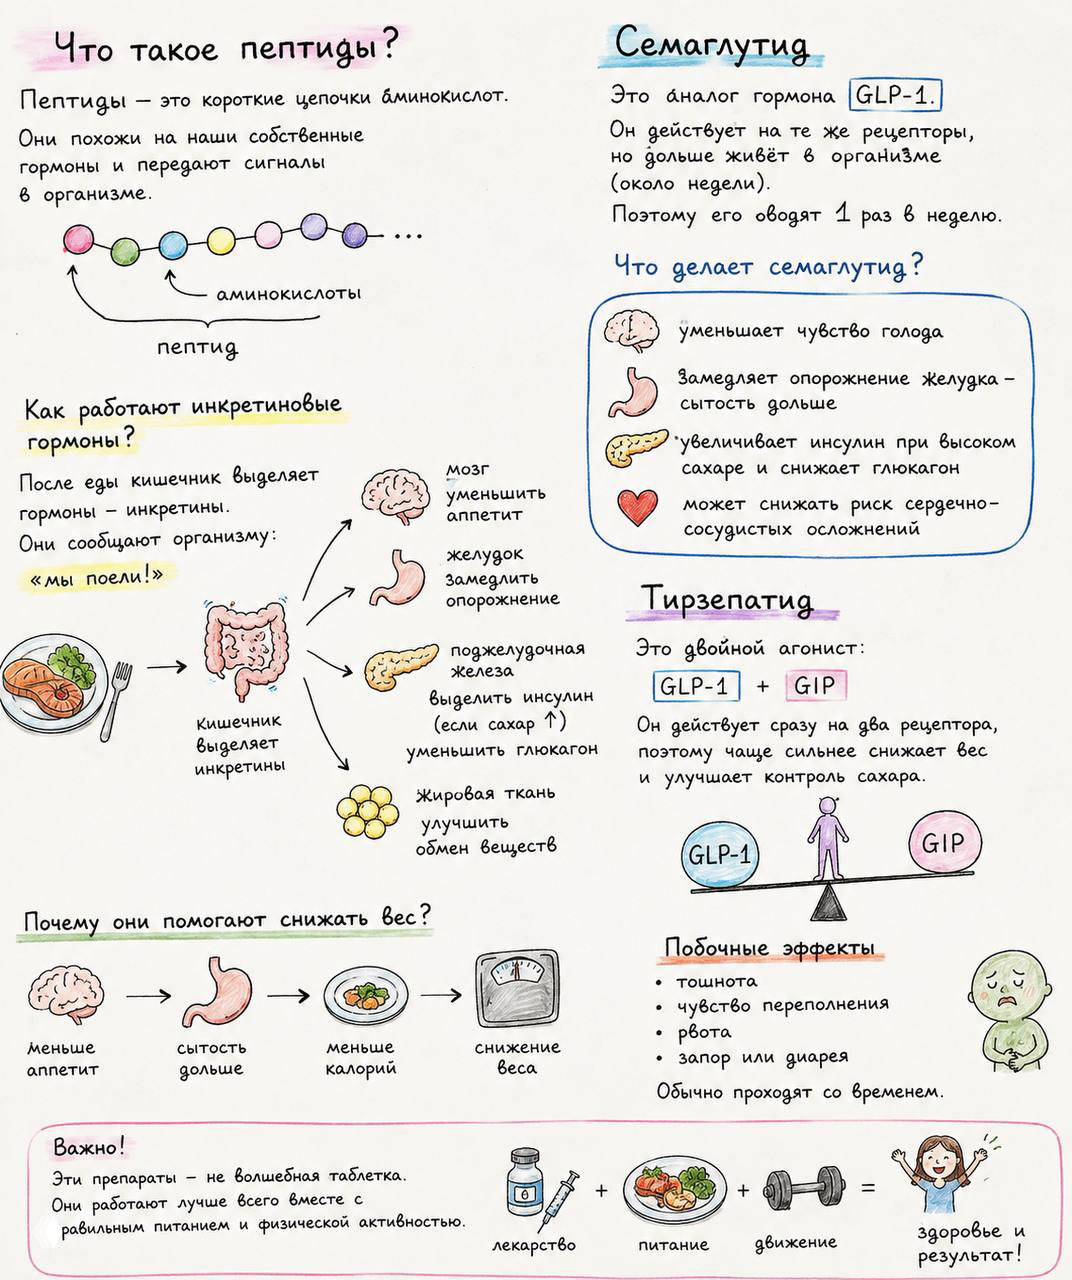 Что такое пептиды?
Пептиды – это короткие цепочки аминокислот.
Они похожи на наши собственные
гормоны и передают сигналы
в организме.
...
аминокислоты
пептид
Как работают инкретиновые
гормоны?
После еды кишечник выделяет
гормоны – инкретины.
Они сообщают организму:
«мы поели!»
кишечник
выделяет
инкретины
мозг
уменьшить
аппетит
желудок
замедлить
опорожнение
поджелудочная
железа
выделить инсулин
(если сахар ↑)
уменьшить глюкагон
жировая ткань
улучшить
обмен веществ
Почему они помогают снижать вес?
меньше
аппетит
сытость
дольше
меньше
калорий
снижение
веса
Семаглутид
Это аналог гормона GLP-1.
Он действует на те же рецепторы,
но дольше живёт в организме
(около недели).
Поэтому его оводят 1 раз в неделю.
Что делает семаглутид?
уменьшает чувство голода
замедляет опорожнение желудка –
сытость дольше
увеличивает инсулин при высоком
сахаре и снижает глюкагон
может снижать риск сердечно-
сосудистых осложнений
Тирзепатид
Это двойной агонист:
GLP-1 + GIP
Он действует сразу на два рецептора,
поэтому чаще сильнее снижает вес
и улучшает контроль сахара.
GLP-1
GIP
Побочные эффекты
• тошнота
• чувство переполнения
• рвота
• запор или диарея
Обычно проходят со временем.
Важно!
Эти препараты – не волшебная таблетка.
Они работают лучше всего вместе с
равильным питанием и физической активностью.
+ + =
лекарство
питание
движение
здоровье и
результат!